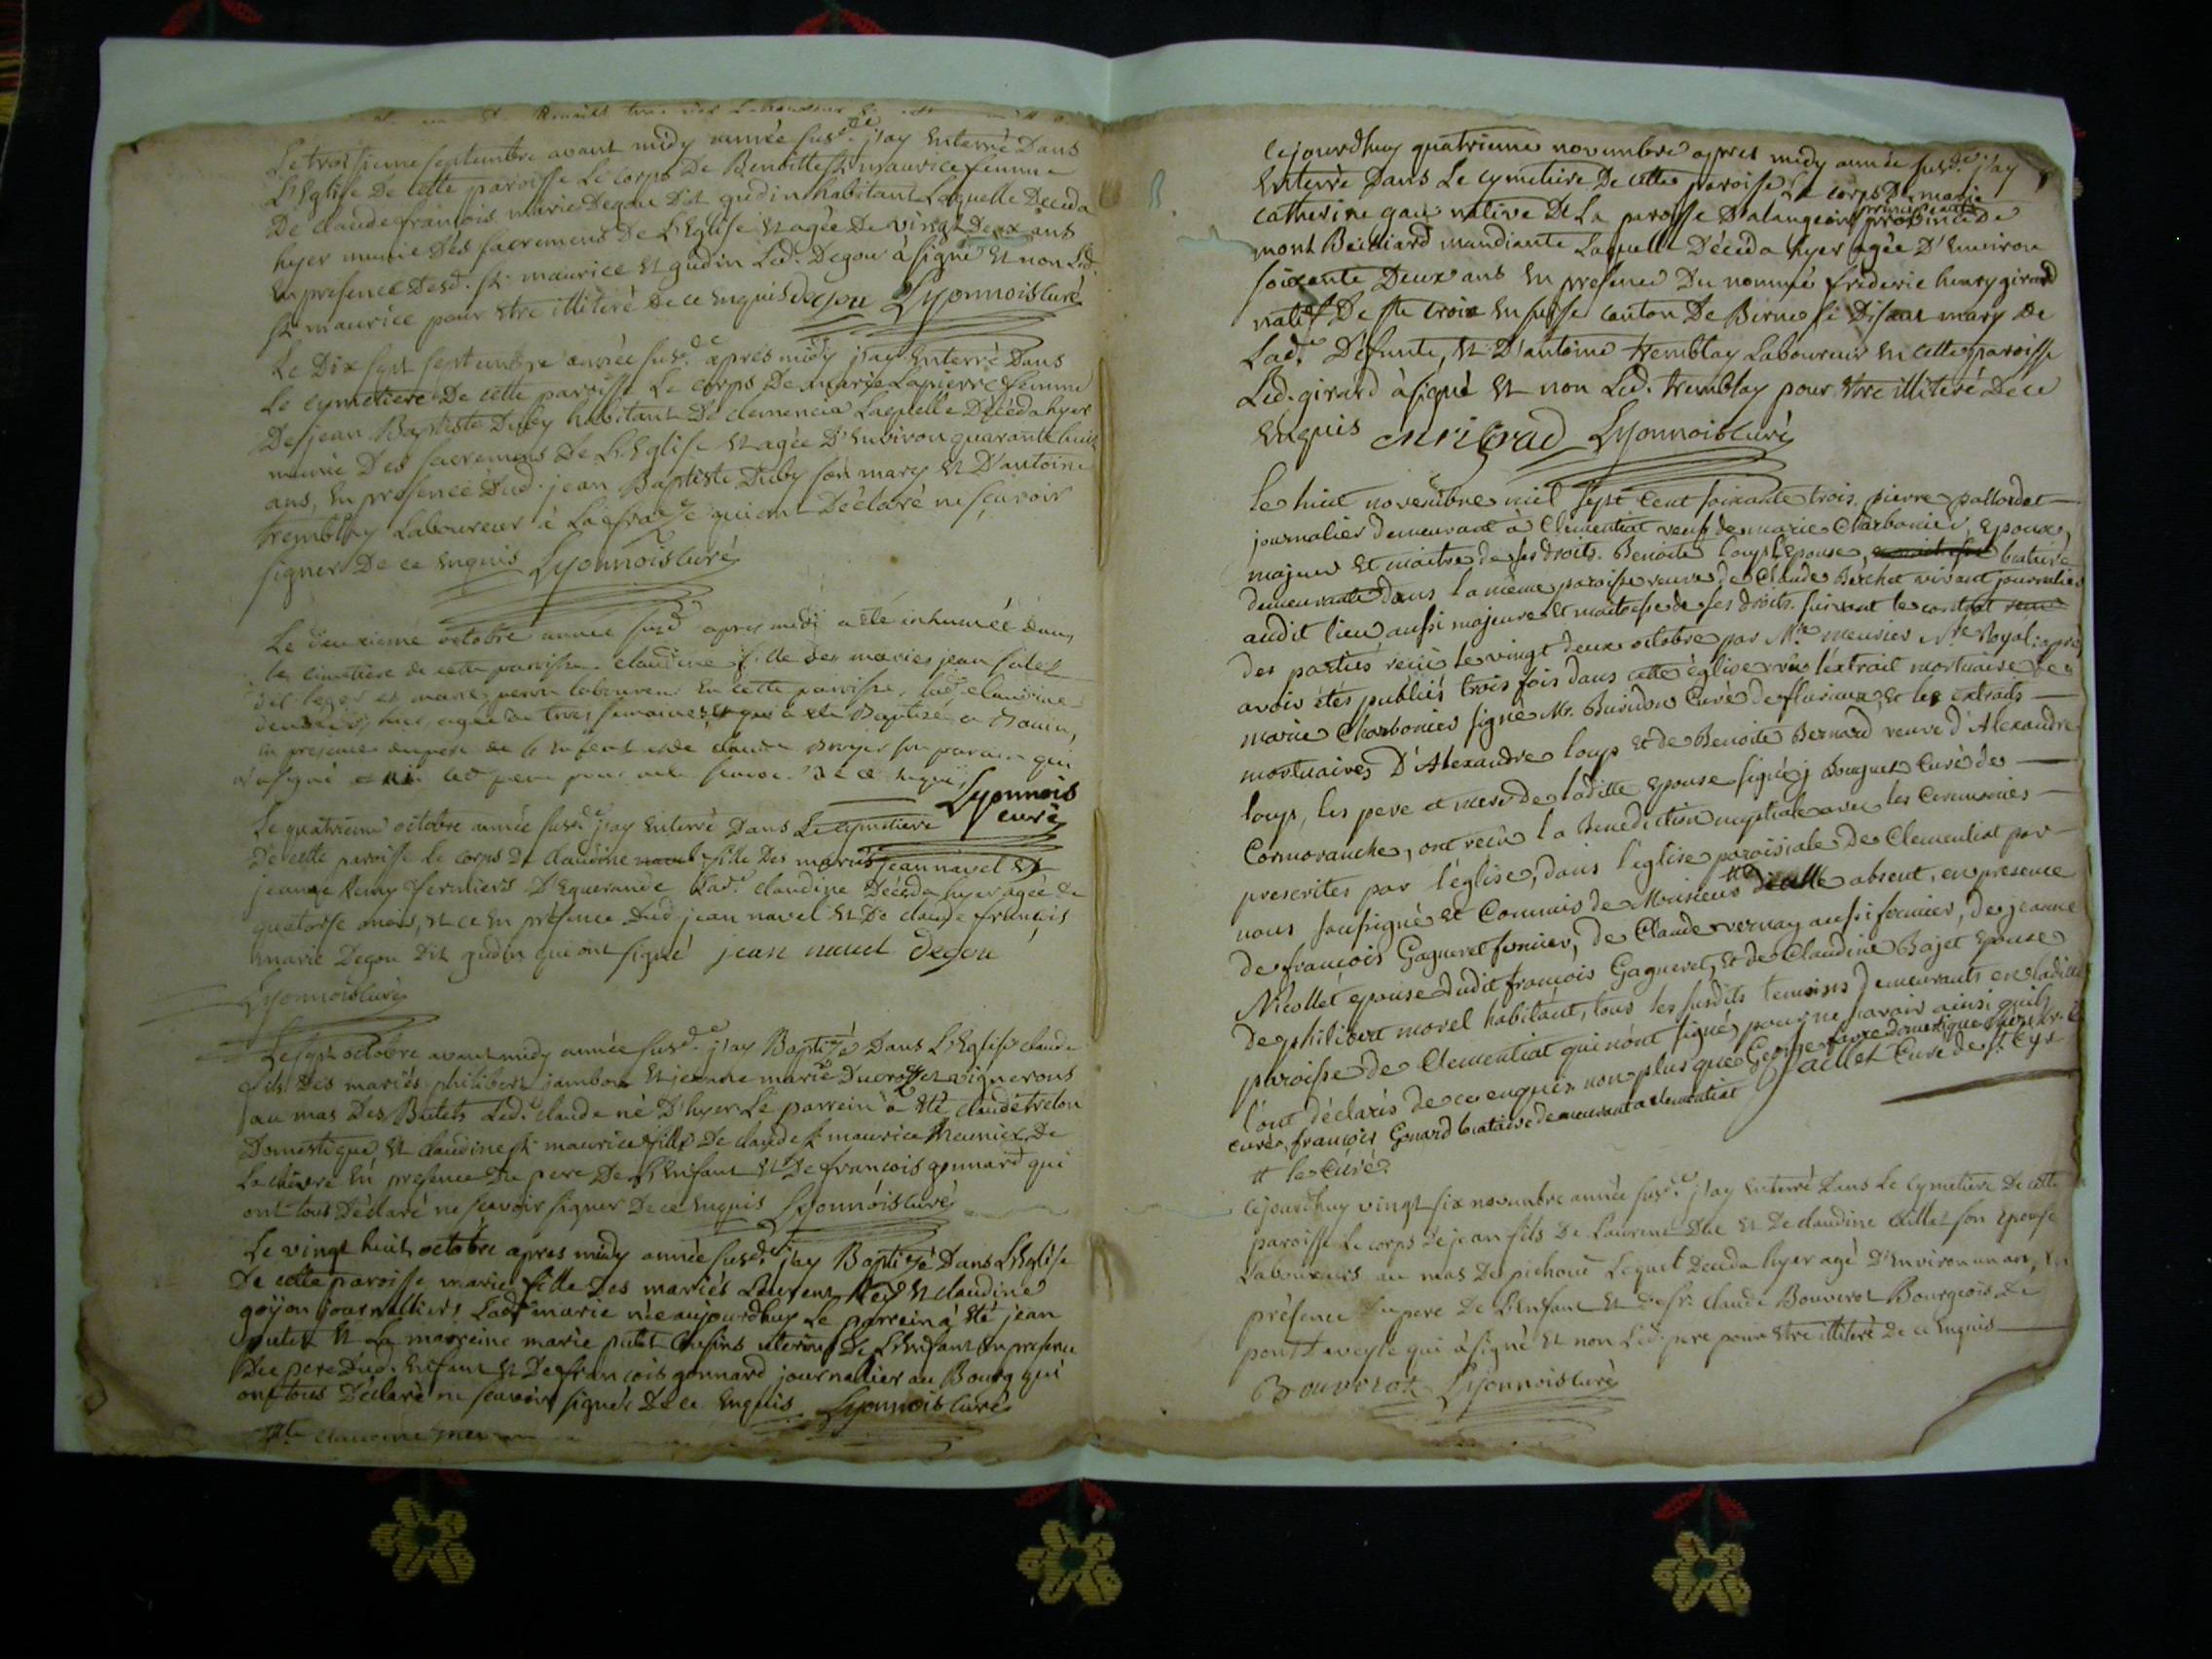 Le troisieme septembre avant midy année susd.e j'ay Enterré Dans
L'Eglise De cette paroisse Le corps De Benoitte St maurice femme
De claude francois marie Degou dit gudin habitant Laquelle Deceda
hyer munie Des sacremens De L'Eglise Et agée De vingt Deux ans
En presence Desd. St. maurice Et gudin Led. Degou à signé Et non Led.
St maurice pour Etre illiteré De ce Enquis degou Lyonnois curé
Le Dix sept septembre année susd.e apres midy j'ay Enterré Dans
Le cymetiere De cette paroisse Le corps De marie Lapierre femme
De jean Baptiste Duby habitant De clemencia Laquelle Décéda hyer
munie Des sacremens De L'Eglise Et agée D'Environ quarante huit
ans, En presence Dud. jean Baptiste Duby son mary Et D'antoine
tremblay Laboureur à qui ont Déclaré ne sçavoir
signer De ce Enquis Lyonnois curé
Le deuxieme octobre année susd.e apres midi a été inhumée dans
le cimetière de cette paroisse claudine fille des mariés jean
dit leger et marie laboureur En cette paroisse, lad. claudine
hier, agée de trois semaines
en presence du pere de l'Enfent et de claude son parain qui
a signé et non led pere pour ne sçavoir De ce Enquis
Lyonnois
curé
Le quatrieme octobre année susd.e j'ay Enterré Dans Le cymetiere
De cette paroisse Le corps De claudine navel fille Des mariés jean navel Et
jeanne Remy fermiers D'Eguerande Lad.e claudine Décéda hyer agée de
quatorse mois, Et ce En présence Dud jean navel Et De claude francois
marie Degou Dit gudin qui ont signé jean navel degou
Lyonnois curé
Le sept octobre avant midy année susd.e j'ay Baptizé Dans L'Eglise claude
fils Des mariés philibert jambon Et jeanne marie Ducrosset vignerons
au mas Des Butets Led. claude né D'hyer Le parrein à été claude tredon
Domestique, Et claudine St maurice fille De claude St maurice Meunier De
En presence Du pere De L'Enfant Et De francois gonnard qui
ont tous Déclaré ne sçavoir signer De ce Enquis Lyonnois curé
Le vingt huit octobre apres midy année susd.e j'ay Baptizé Dans L'Eglise
De cette paroisse marie fille Des mariés Laurent Et claudine
goyon journalliers Lad.e marie née aujourdhuy Le parrein à été jean
putet Et La marreine marie putet cousins uterins De L'Enfant En presence
Du pere Dud. Enfant Et De francois gonnard journalier au Bourg qui
ont tous Déclaré ne sçavoir signer De ce Enquis Lyonnois curé
claudine
Cejourdhuy quatrieme novembre apres midy année susd.e j'ay
Enterré Dans Le cymetiere De cette paroisse Le corps De marie
catherine gau native De La paroisse D'alangeois principauté de
mont Beilliard mandiante Laquelle Décéda hyer agée D'Environ
soixante Deux ans En presence Du nommé frederic henry girard
natif De ste croix En suisse canton De Berne se Disant mary De
Lad.e Défunte, Et D'antoine tremblay Laboureur En cette paroisse
Led. girard à signé Et non Led. tremblay pour Etre illiteré De ce
Enquis Lyonnois curé
Le huit novembre mil sept cent soixante trois, pierre pallordet
journalier demeurant à Clementiat veuf de marie Charbonier, Epoux,
majeur et maitre de ses droits. Benoite loup l'Epouse, batiere
demeurante dans la même paroisse veuve de Claude Berchet vivant journalier
audit lieu aussi majeure et maitresse de ses droits. suivant le contrat
des parties reçu le vingt deux octobre par M.re meunier N.re Royal; apres
avoir étés publiés trois fois dans cette église vu l'extrait mortuaire de
marie Charbonier signé Mr. Buiron Curé de flurieux, et les extraits
mortuaires D'Alexandre loup et de Benoite Bernard veuve d'Alexandre
loup, les pere et mere de laditte Epouse signés j Bouquet Curé de
Cormoranche, ont reçu la Benediction nuptiale avec les Ceremonies
prescrites par l'église, dans l'eglise paroissiale de Clementiat par
nous soussigné et Commis de Monsieur absent, en presence
de françois Gagneret fermier, de Claude vernay aussi fermier, de jeanne
Nicollet epouse dudit françois Gagneret, et de Claudine Bajet Epouse
de philibert morel habitant, tous les susdits temoins demeurants en laditte
paroisse de Clementiat qui n'ont signés pour ne savoir ainsi quils
l'ont déclarés de ce enquis. non plus que George domestique
curé, françois Gonard demeurant a clementiat Jaillet Curé de St Cyr
# le Curé.
Cejourdhuy vingt six novembre année susd.e j'ay Enterré Dans Le cymetiere De cette
paroisse Le corps De jean fils De Laurent Duc Et De claudine son Epouse
Laboureurs au mas De pichoux Lequel Deceda hyer agé D'Environ un an, En
présence Du pere De L'Enfant Et De sr. claude Bouverot Bourgeois De
pont de veyle qui à signé Et non Led. pere pour Etre illiteré De ce Enquis
Bouverot Lyonnois curé